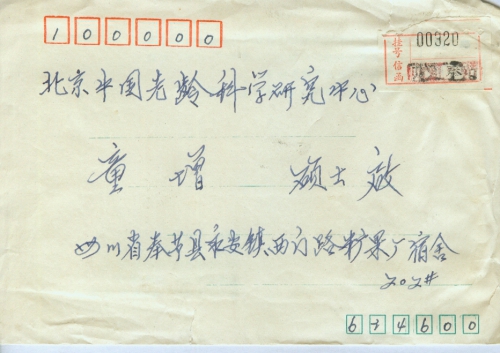 100000
挂号信函
00320
北京中国老龄科学研究中心
童增 硕士 启
四川省奉节县永安镇西门路苹果厂宿舍
202#
634600